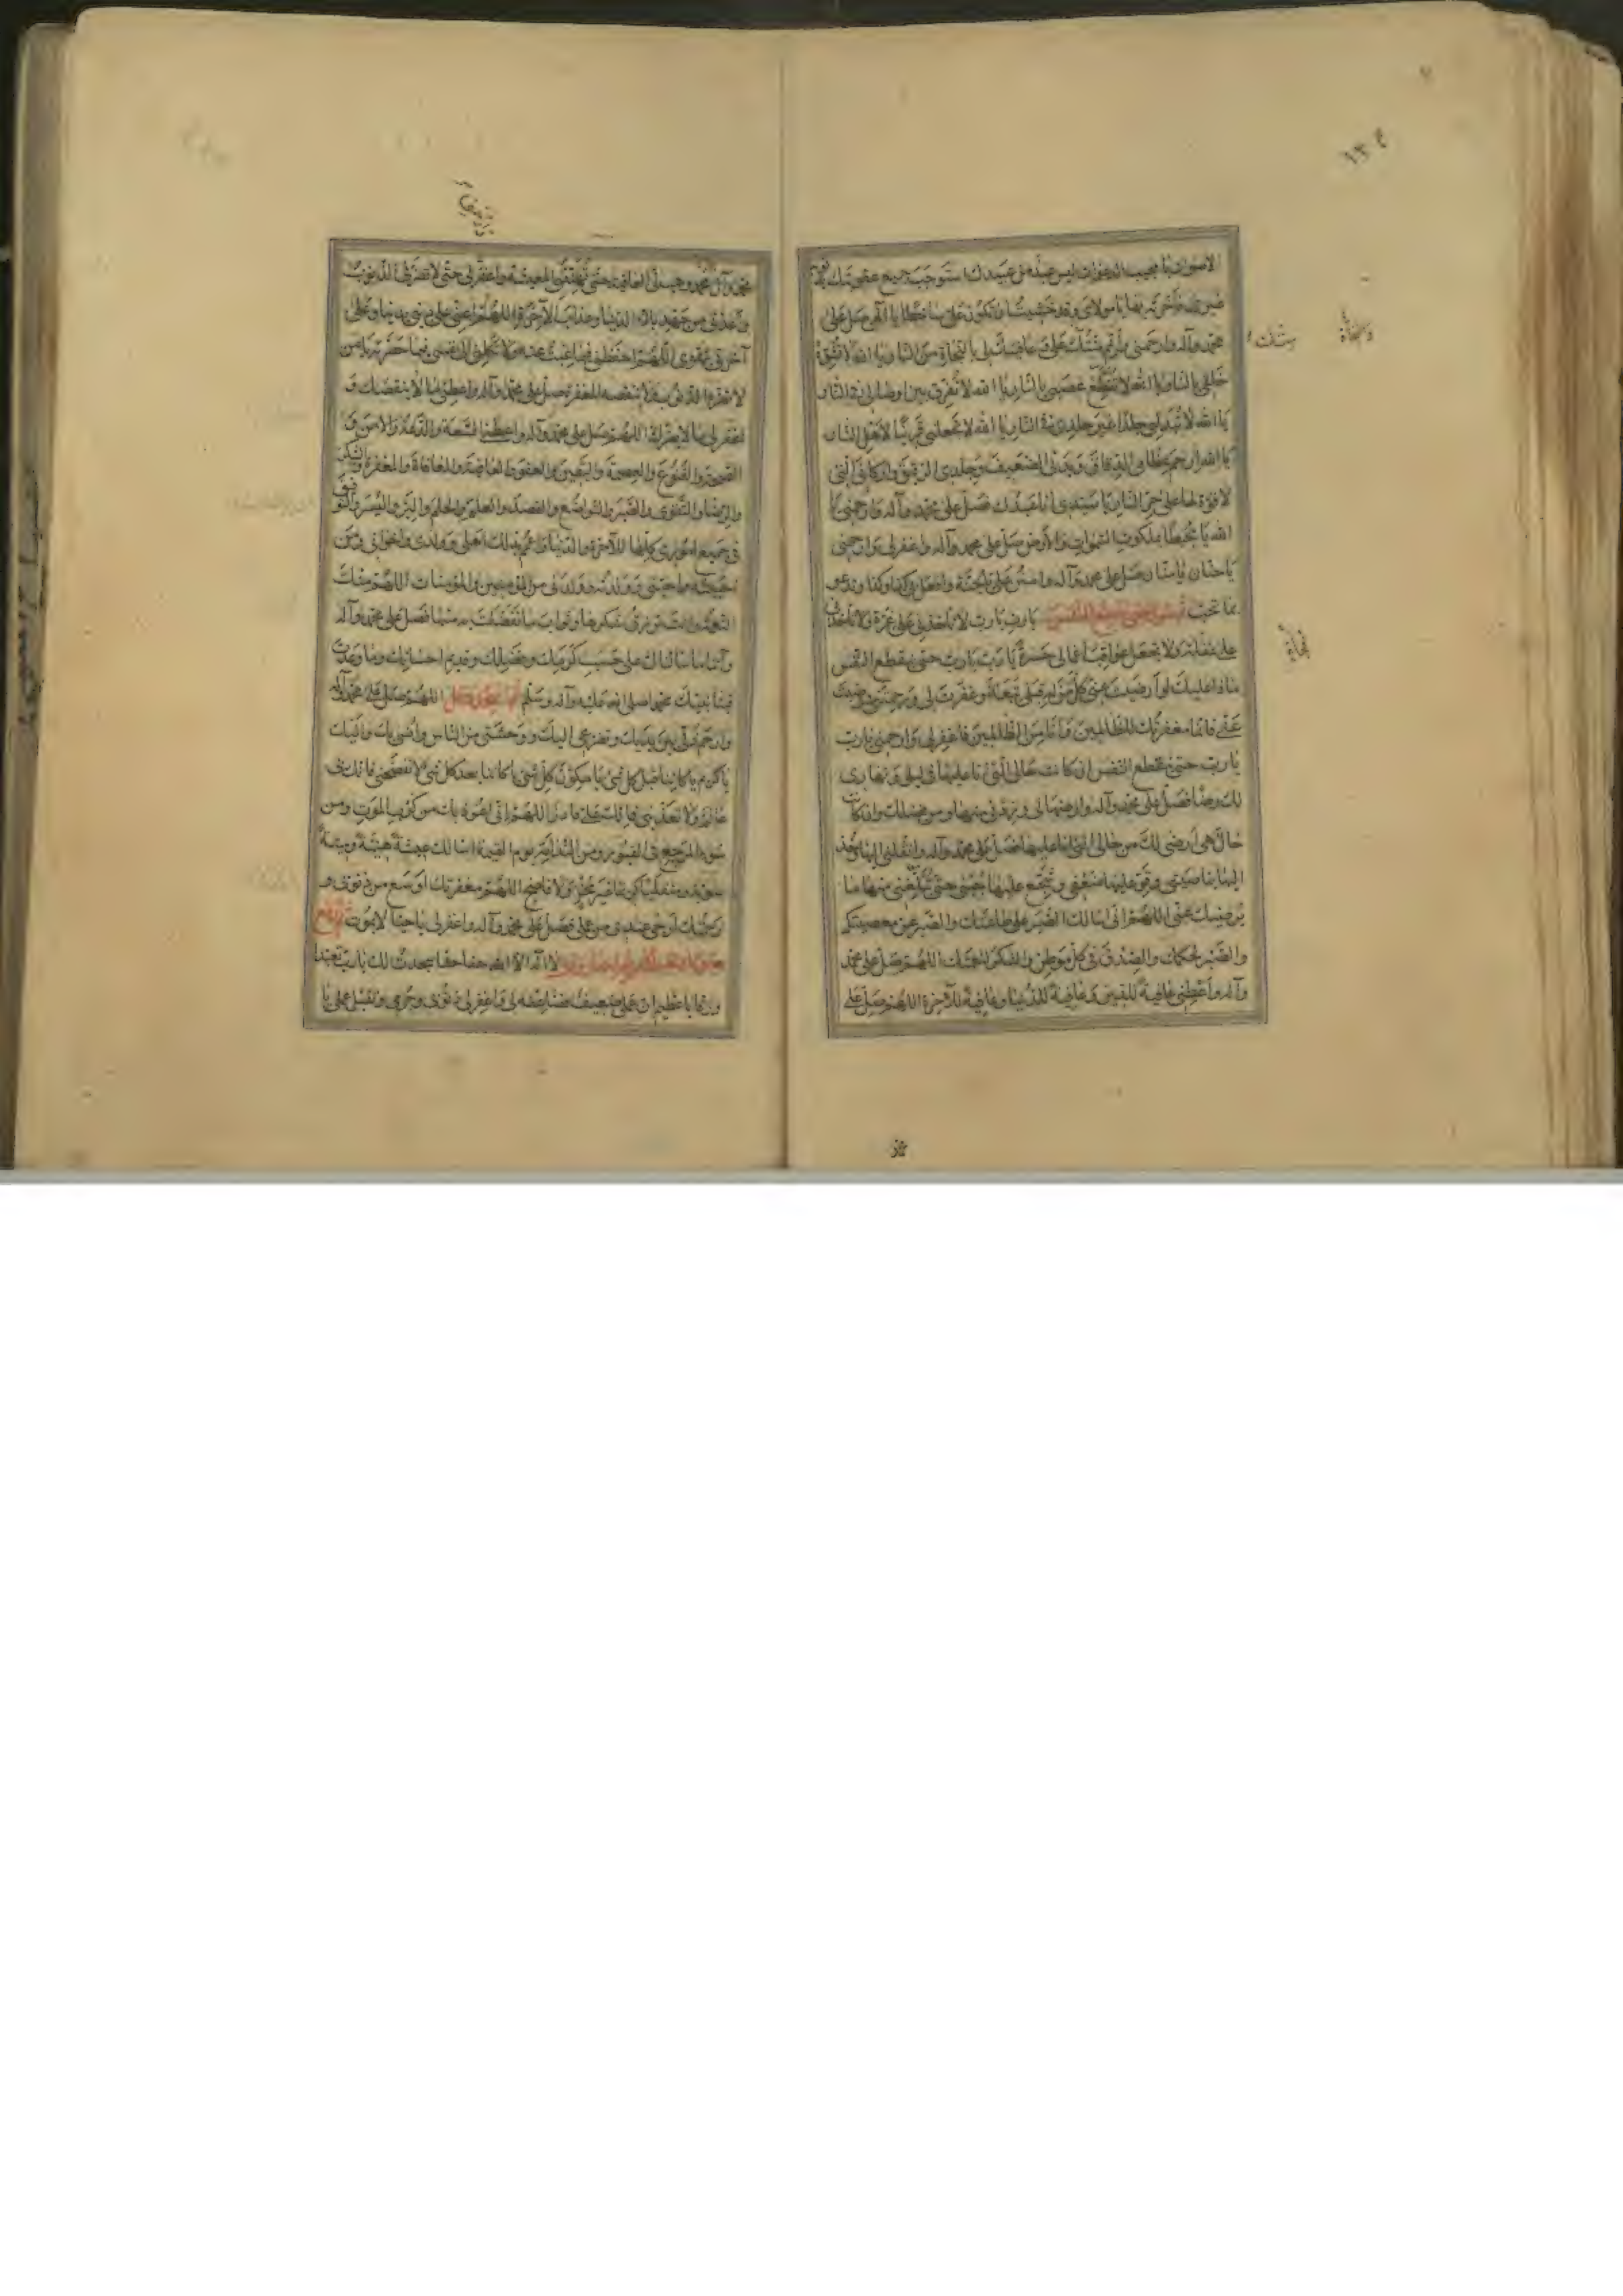 ١٣٤
الاصوات يا مجيب الدعوات ليس عبد من عبيدك استوجب جميع عقوبتك
غيرى فاخرته بها يا مولاى وقد خشيت ان تكون على ساخطا يا الهى صل على
محمد وآله وارحمنى بالنجاة من النار يا الله لا تفرق
خلقى بالنار يا الله لا تقطع عصبى بالنار يا الله لا تفرق بين اوصالى فى النار
يا الله لا تبدلنى جلدا غير جلدى فى النار يا الله لا تجعلنى قرينا لاهل النار
يا الله ارحم عظامى الدقاق وبدنى الضعيف وجلدى الرقيق واركانى التى
لا قوة لها على حر النار يا سيدى انا عبدك فصل على محمد وآله وارحمنى يا
الله يا محيطا بملكوت السموات والأرض صل على محمد وآله واغفر لى وارحمنى
يا حنان يا منان صل على محمد وآله وامنن على بالجنة وافعل بى كذا وكذا وتدعو
بما تحب يا رب يا رب لا تأخذنى على غرة ولا تأخذنى
على غفلة ولا تجعل عواقب اعمالى حسرة يا رب يا رب حتى ينقطع النفس
ماذا عليك لو ارضيت عنى كل من له قبلى تبعة وغفرت لى ورحمتنى ورضيت
عنى فانما مغفرتك للظالمين وانا من الظالمين فاغفر لى وارحمنى يا رب
يا رب حتى ينقطع النفس ان كانت حالى التى انا عليها فى ليلى ونهارى
لك رضا فصل على محمد وآله وارضها لى وزدنى منها ومن فضلك وان كانت
حال هى ارضى لك من حالى التى انا عليها فصل على محمد وآله وانقلنى اليها وخذ
اليها بناصيتى وقو عليها ضعفى وشجع عليها جبنى حتى تبلغنى منها ما
يرضيك عنى اللهم انى اسالك الصبر على طاعتك والصبر عن معصيتك
والصبر لحكمك والصدق فى كل موطن والشكر لنعمتك اللهم صل على محمد
وآله واعطنى عافية للدين وعافية للدنيا وعافية للآخرة اللهم صل على
محمد وآل محمد وهب لى العافية حتى تهنئنى المعيشة واغفر لى حتى لا تضرنى الذنوب
واعذنى من جهد بلاء الدنيا وعذاب الآخرة اللهم اعنى على دينى بدنيا وعلى
آخرتى بتقوى اللهم احفظنى فيما غبت عنه ولا تكلنى الى نفسى فيما حضرته يا من
لا تضره الذنوب ولا تنقصه المغفرة صل على محمد وآله واعطنى ما لا ينقصك و
اغفر لى ما لا يضرك اللهم صل على محمد وآله واعطنا السعة والدعة والامن و
الصحة والقنوع والعصمة واليقين والعفو والعافية والمعافاة والمغفرة والشكر
والرضا والتقوى والصبر والتواضع والقصد والعلم والحلم والبر واليسر والتوفيق
فى جميع امورى كلها للآخرة والدنيا واعمم بذلك اهلى وولدى واخوانى ومن
احببته واحبنى وولدته وولدنى من المؤمنين والمؤمنات اللهم منك
النعمة وانت ترزق شكرها وثواب ما تفضلت به منها فصل على محمد وآله
وآتنا ما سألناك على حسب كرمك وفضلك وقديم احسانك وما وعدت
فينا نبيك محمدا صلى الله عليه وآله وسلم اللهم صل على محمد وآله
وارحم ذلى بين يديك وتضرعى اليك ووحشتى من الناس وأنسى بك واليك
يا كريم يا كائنا قبل كل شئ يا مكون كل شئ يا كائنا بعد كل شئ لا تفضحنى فانك بى
عالم ولا تعذبنى فانك على قادر اللهم انى اعوذ بك من كرب الموت ومن
سوء المرجع فى القبور ومن الندامة يوم القيمة اسالك عيشة هنيئة وميتة
سوية ومنقلبا كريما غير مخز ولا فاضح اللهم مغفرتك اوسع من ذنوبى و
رحمتك ارجى عندى من عملى فصل على محمد وآله واغفر لى يا حيا لا يموت
لا اله الا الله حقا حقا سجدت لك يا رب تعبدا
ورقا يا عظيم ان عملى ضعيف فضاعفه لى واغفر لى ذنوبى وجرمى وتقبل عملى يا